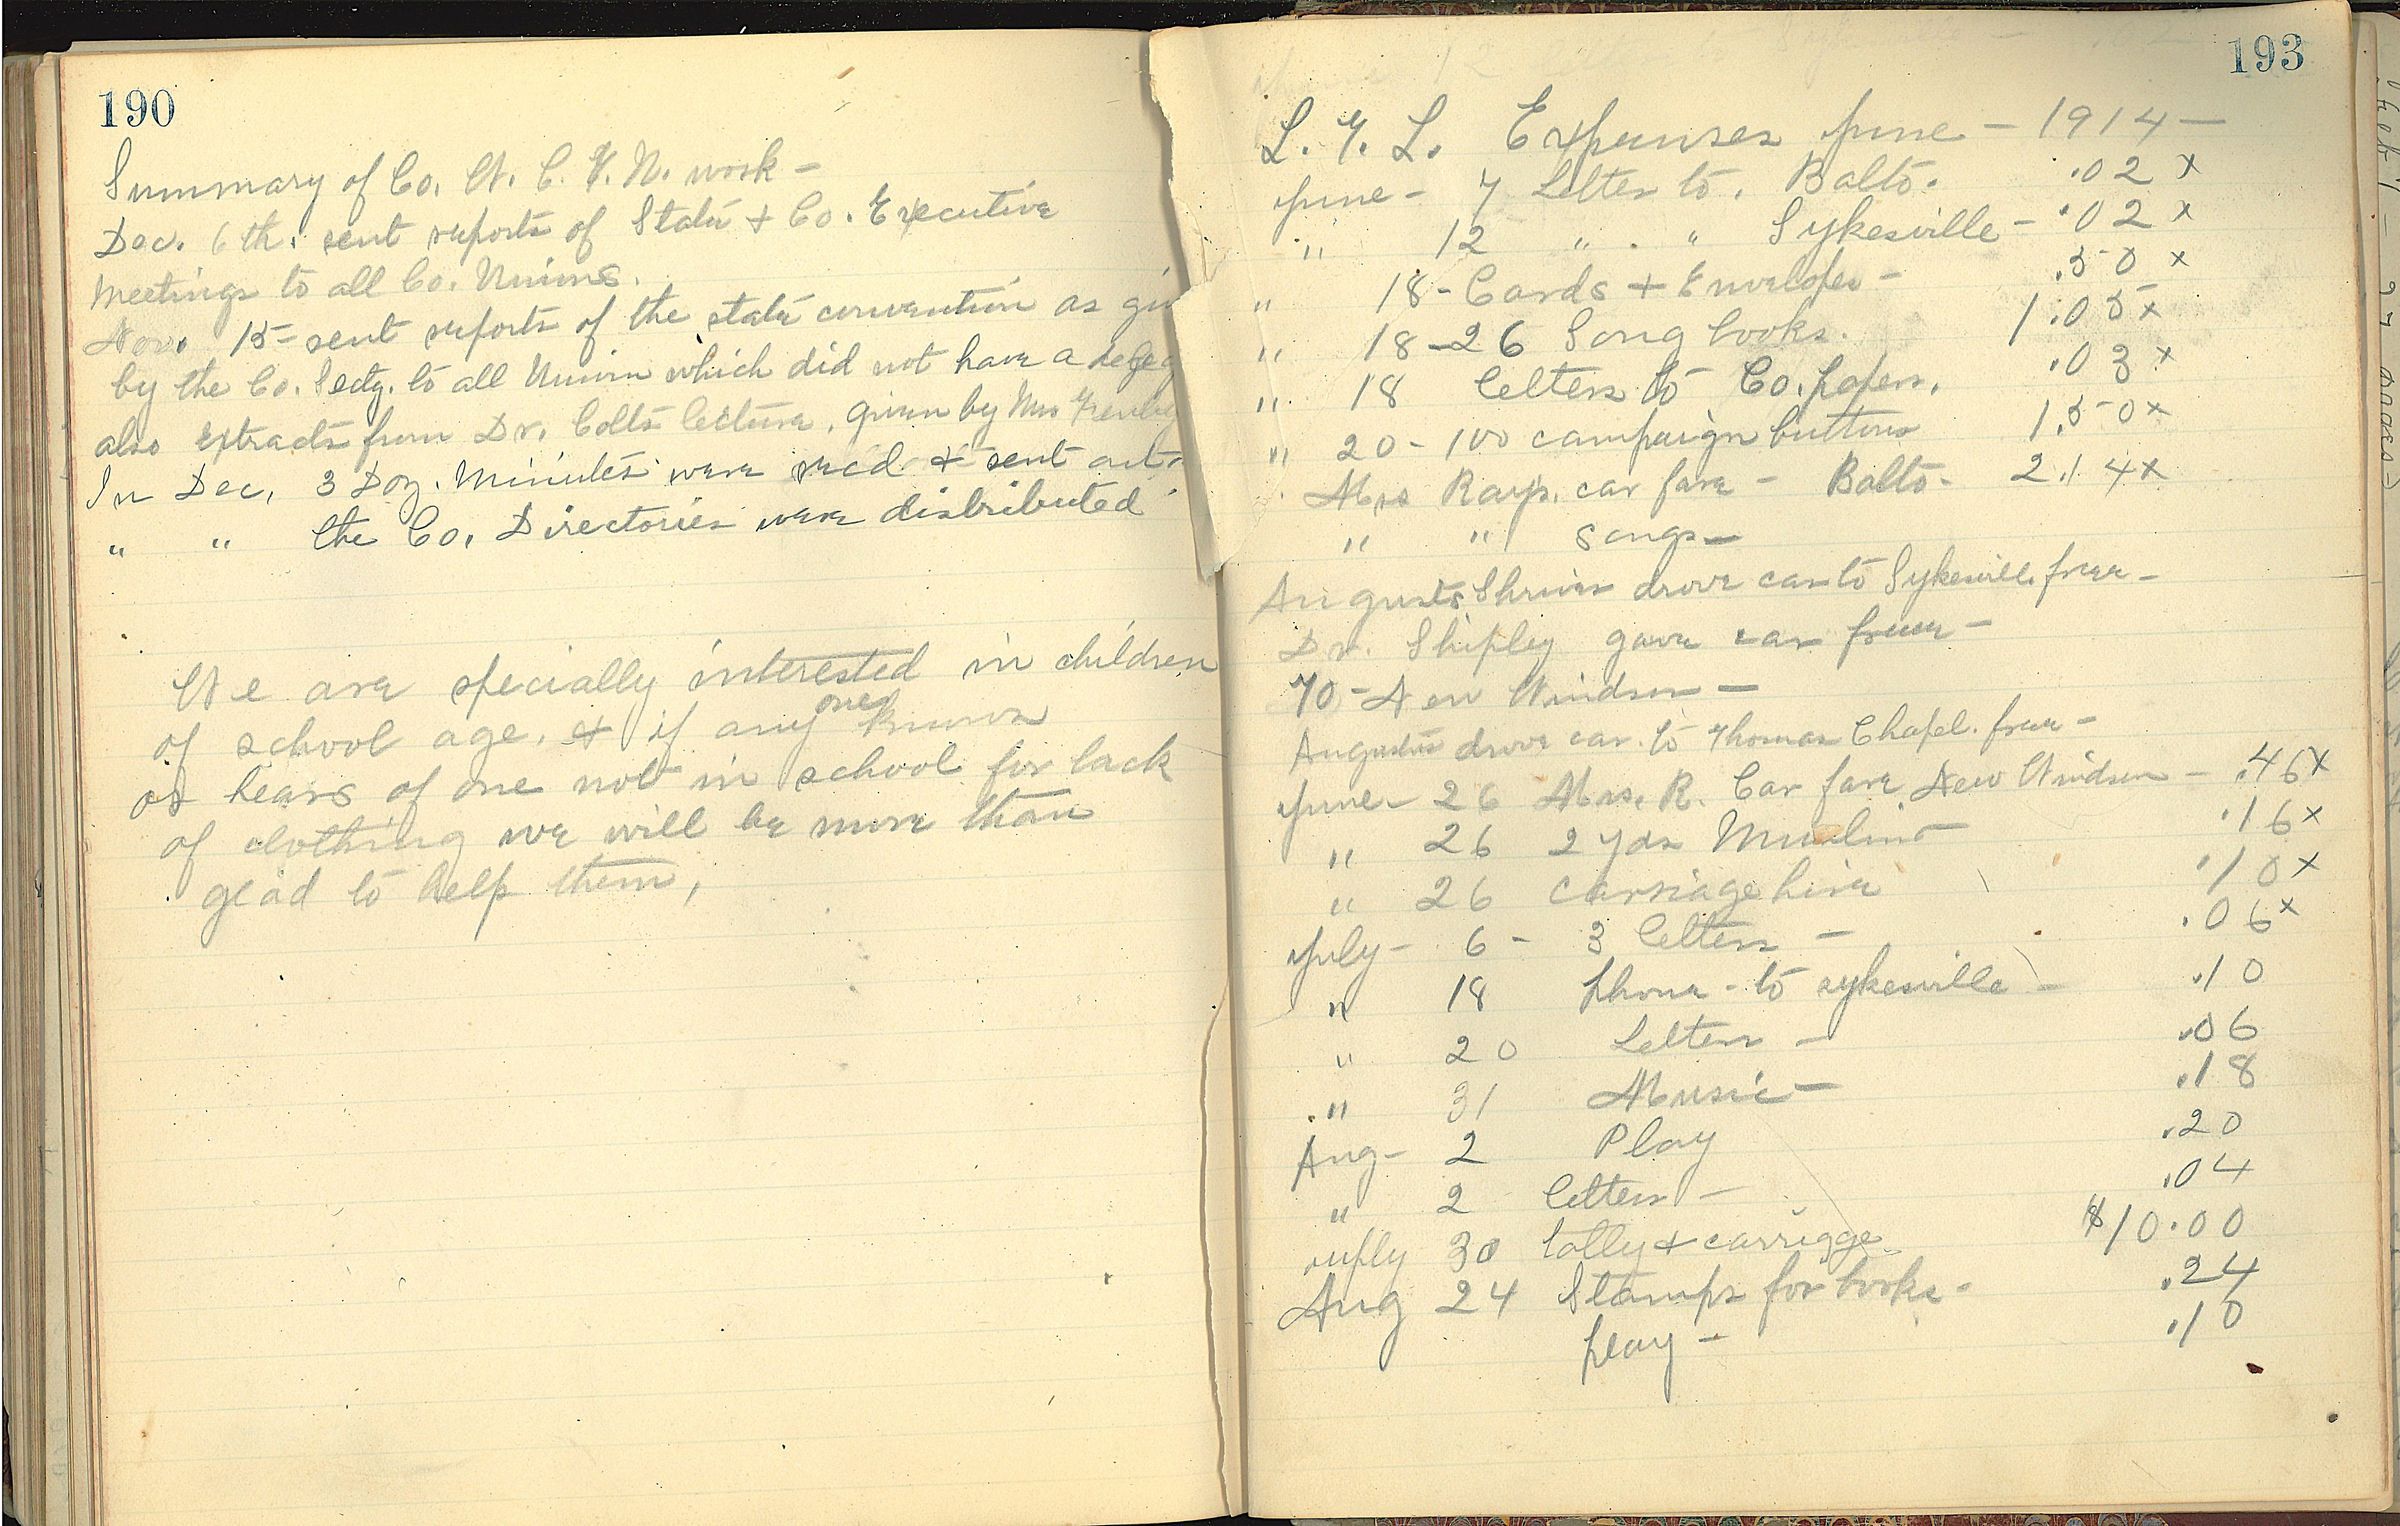 190
Summary of Co. W. C. T. U. work -
Dec. 6th. sent reports of State + Co. Executive
Meetings to all Co. Unions.
Nov. 15 - sent reports of the state convention as giv
by the Co. Secty. to all Union which did not have a deleg
also extracts from Dr. Colts lecture, given by Mrs
In Dec. 3 Doz. Minutes were recd + sent out -
" " the Co. Directories were distributed
We are specially interested in children
of school age, + if any one knows
or hears of one not in school for lack
of clothing we will be more than
glad to help them,
193
L. T. L. Expenses June - 1914 -
June - 7 Letter to. Balto. .02 x
" 12 " . " Sykesville - .02 x
" 18 - Cards + Envelopes - .50 x
" 18 - 26 Song books. 1.05 x
" 18 letters to Co. papers. .03 x
" 20 - 100 campaign buttons 1.50 x
Mrs Rays. car fare - Balto - 2.14 x
" " songs -
Augusts Shriver drove car to Sykesville free -
Dr. Shipley gave car free -
To - New Windsor -
Augustus drove car to Thomas Chapel. free -
June - 26 Mrs. R. Car fare New Windsor - .46 x
" 26 2 yds Muslin - .16 x
" 26 carriage hire .10 x
July - 6 - 3 letters - .06 x
" 18 phone - to sykesville - .10
" 20 Letters - .06
" 31 Music - .18
Aug - 2 Play .20
" 2 letters - .04
July 30 tally + carrigge $10.00
Aug 24 Stamps for books - .24
play - .10